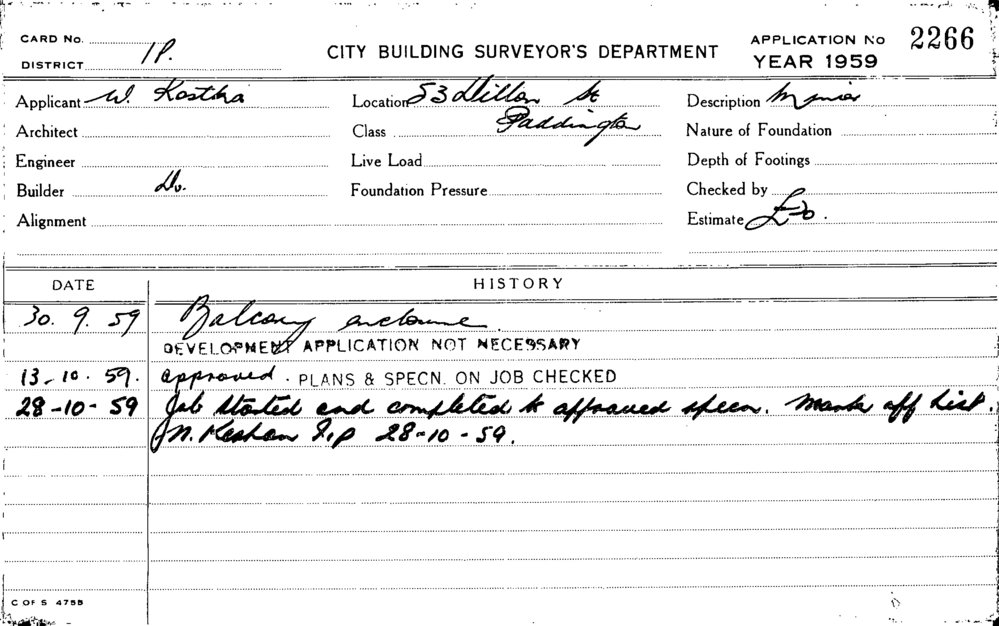 CARD No.
DISTRICT 1P.
CITY BUILDING SURVEYOR'S DEPARTMENT
APPLICATION No 2266
YEAR 1959
Applicant W. Kostka
Location 53 Dillon St
Paddington
Description Minor
Architect
Class
Nature of Foundation
Engineer
Live Load
Depth of Footings
Builder Do.
Foundation Pressure
Checked by
Alignment
Estimate
DATE HISTORY
30. 9. 59 Balcony enclosure
DEVELOPMENT APPLICATION NOT NECESSARY
13-10. 59. approved. PLANS & SPECN. ON JOB CHECKED
28-10-59 Job started and completed to approved specn. Mark off List.
28-10-59.
C OF S 475B